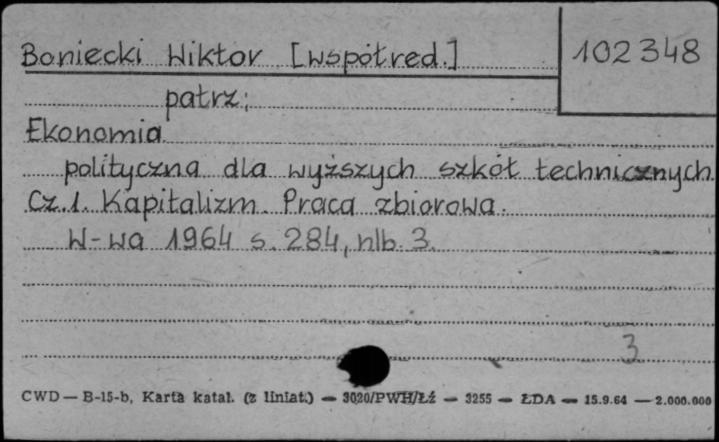 Boniecki Wiktor [współred.]
102348
patrz:
Ekonomia
polityczna dla wyższych szkół technicznych
Cz.1. Kapitalizm. Praca zbiorowa.
W-wa 1964 s. 284, nlb. 3.
3
CWD — B-15-b, Karta katal. (z liniat.) — 3020/PWH/Łź — 3255 — ŁDA — 15.9.64 — 2.000.000